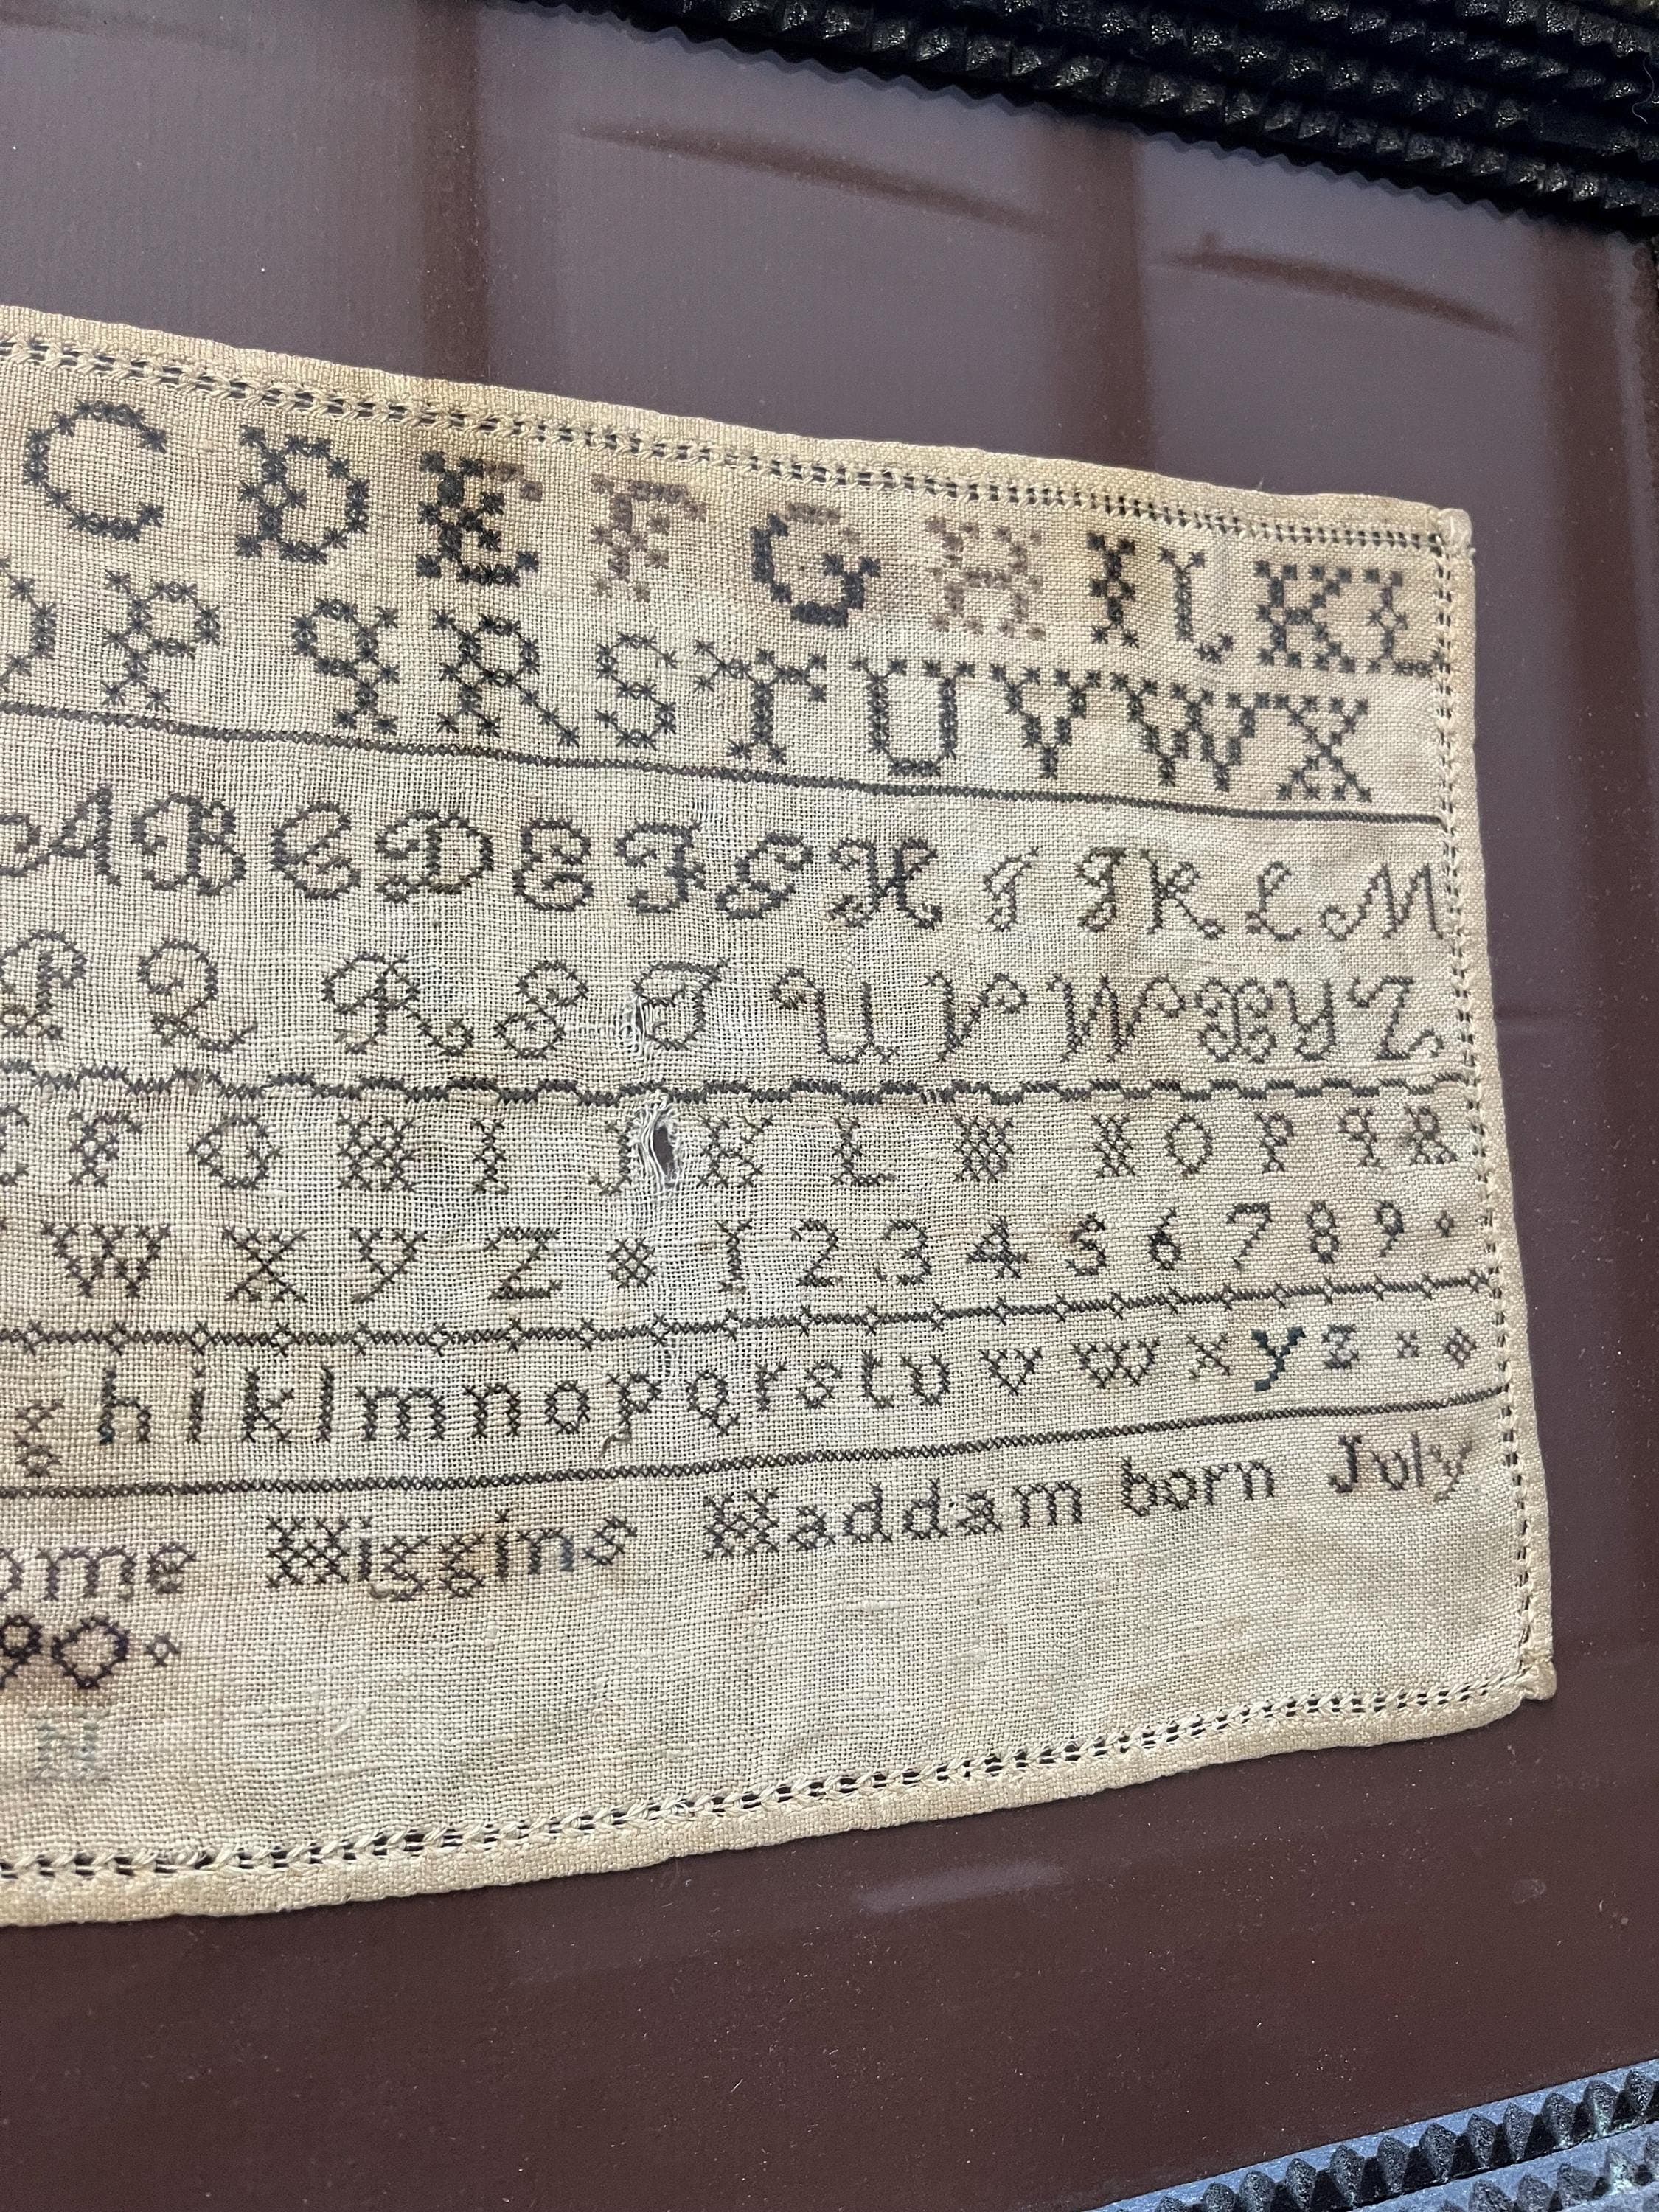 C D E F G H I J K L
P Q R S T U V W X
A B C D E F G H I J K L M
P Q R S T U V W X Y Z
F G H I J K L M N O P Q R
W X Y Z 1 2 3 4 5 6 7 8 9
g h i k l m n o p q r s t u v w x y z
ome Higgins Haddam born July
90